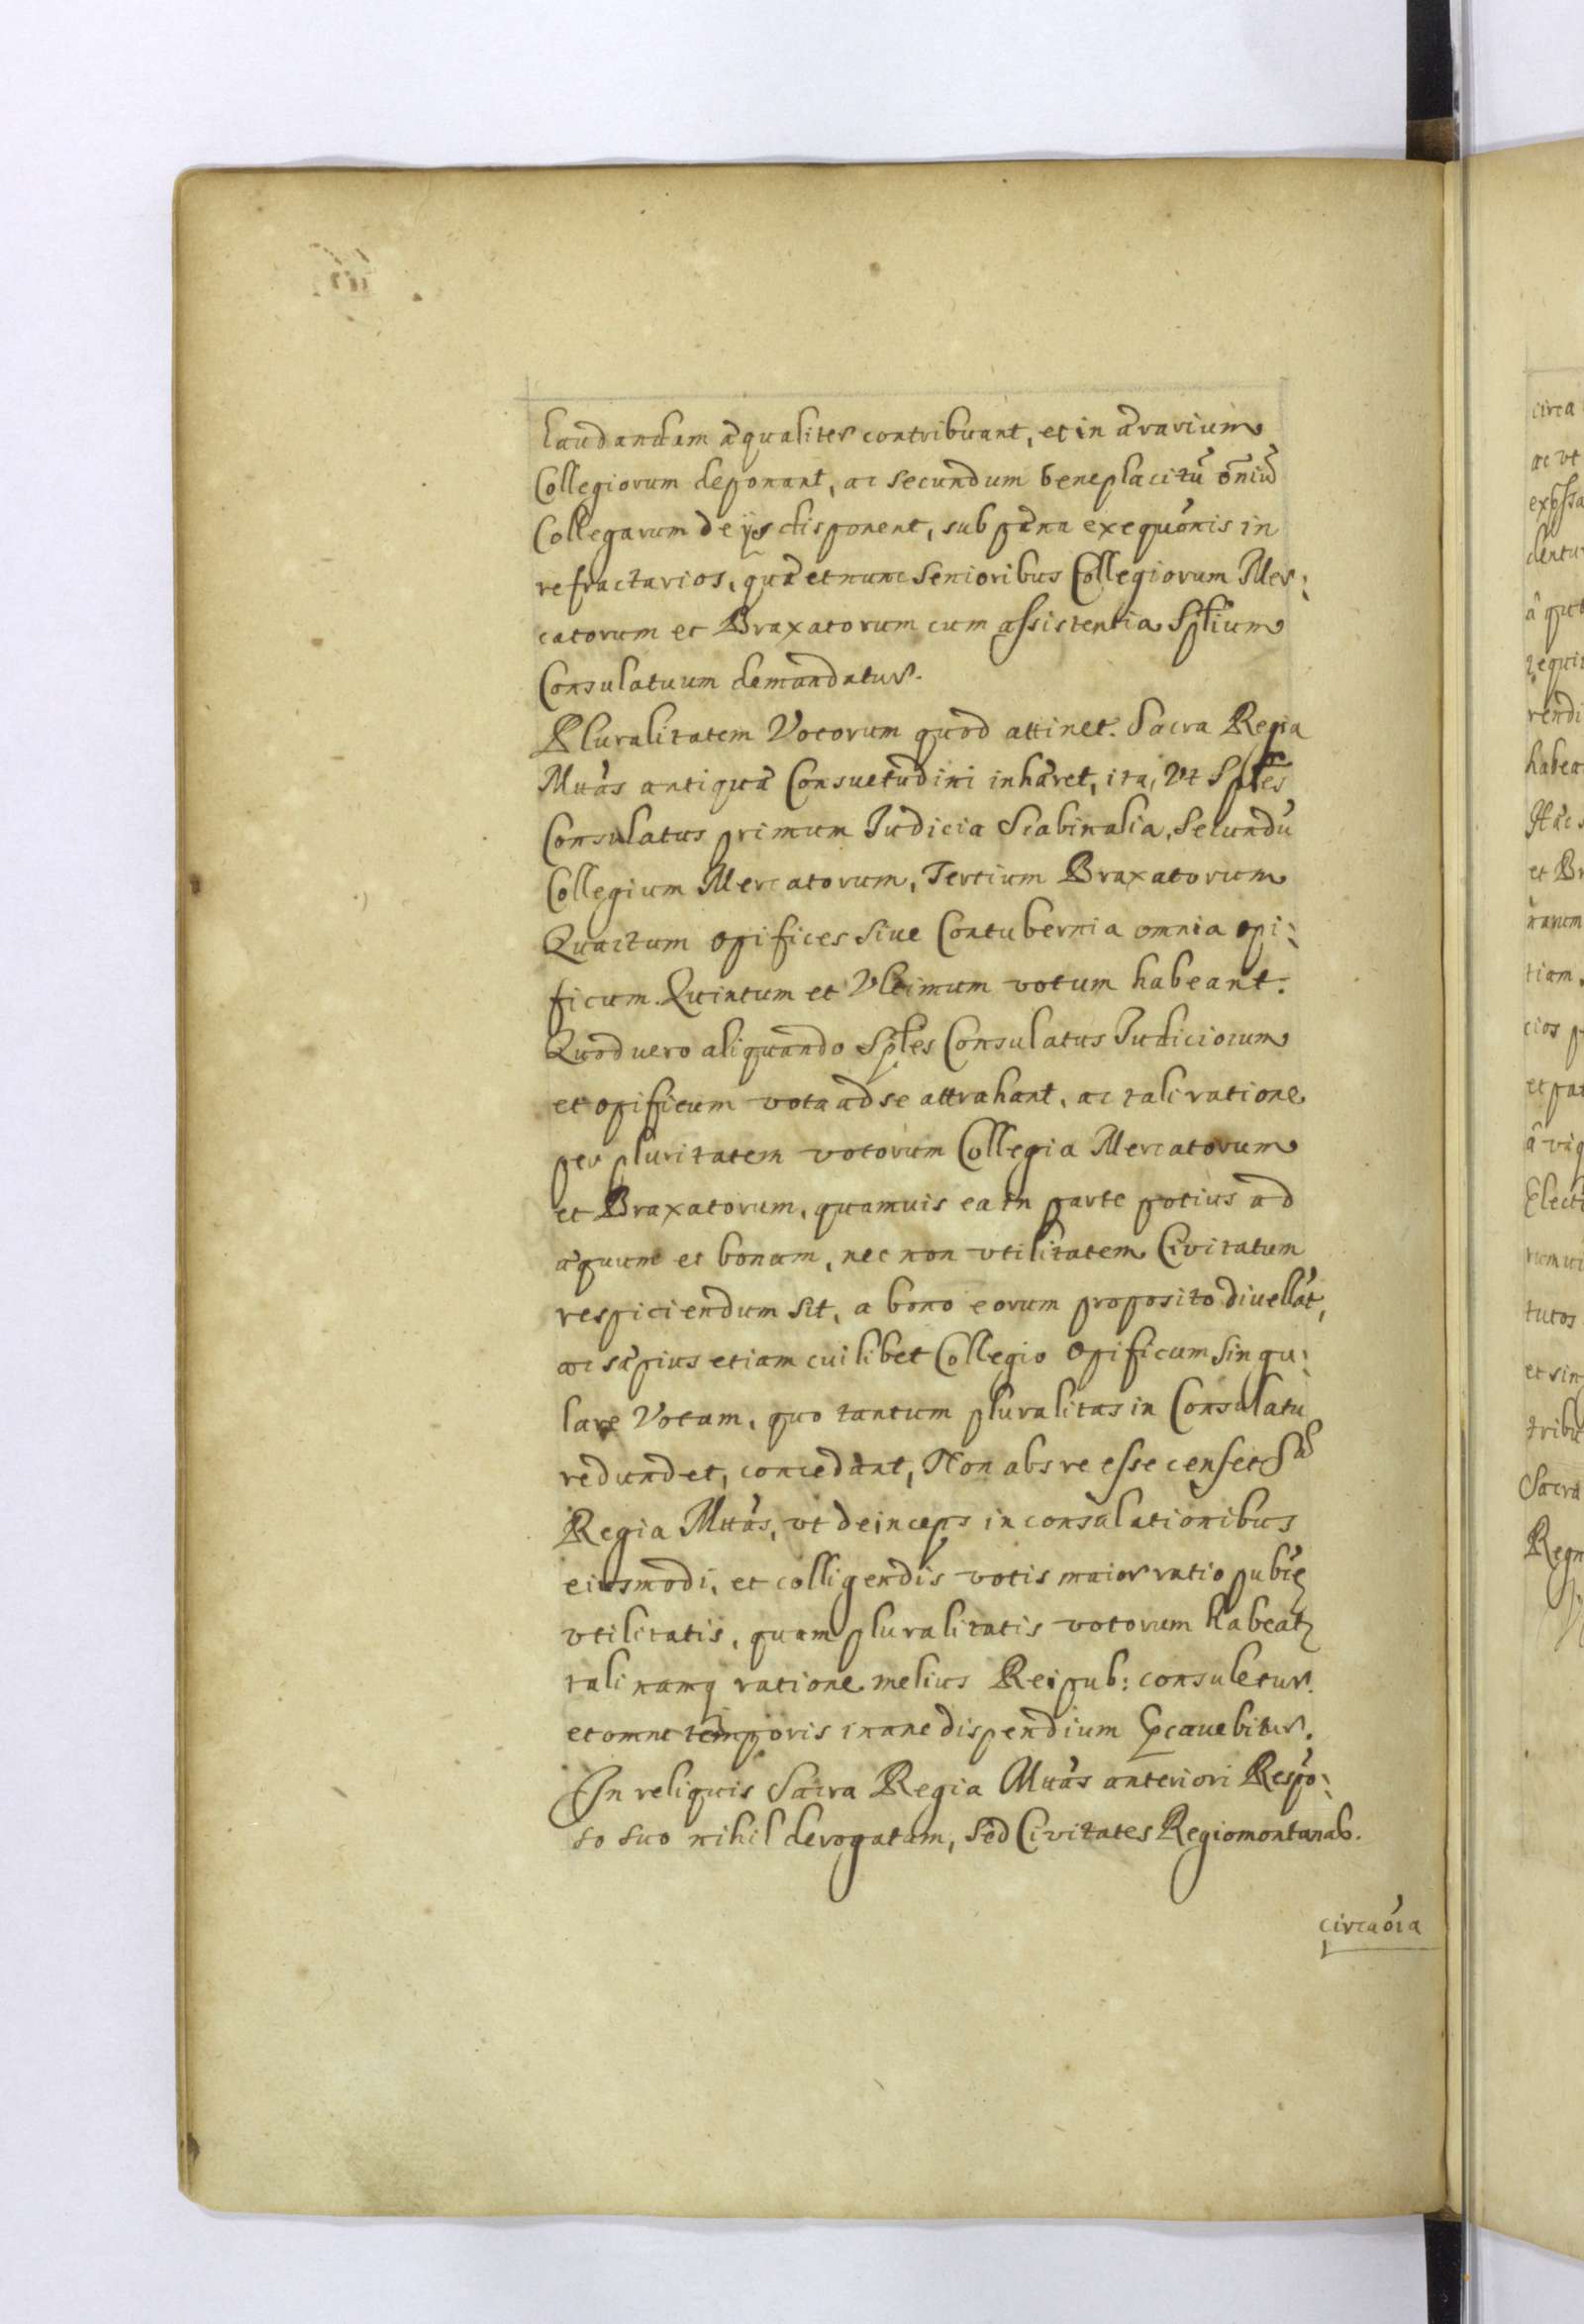 laudandam æqualiter contribuant, et in ærarium
Collegiorum deponant, ac secundum beneplacitū om̄niū
Collegarum de ijs disponent, sub pæna exequōnis in
refractarios, quæ et nunc Senioribus Collegiorum Mer:
catorum et Braxatorum cum assistentia Splium
Consulatuum demandatur.
Pluralitatem Votorum quod attinet. Sacra Regia
Mttas antiquæ Consuetudini inhæret, ita, Vt Sples
Consulatus primum Iudicia Scabinalia, Secundū
Collegium Mercatorum, Tertium Braxatorum
Quartum opifices siue Contubernia omnia opi:
ficum Quintum et Vltimum votum habeant.
Quod uero aliquando Sples Consulatus Iudiciorum
et opificum vota ad se attrahant, ac tali ratione
per pluritatem votorum Collegia Mercatorum
et Braxatorum, quamuis ea in parte potius ad
æquum et bonum, nec non vtilitatem Civitatum
respiciendum sit, a bono eorum proposito diuellāt,
ac sæpius etiam cuilibet Collegio opificum Singu:
lare Votum, quo tantum pluralitas in Consulatu
redundet, concedant, Non abs re esse censet Sa
Regia Mttas, vt deinceps in consulationibus
eiusmodi, et colligendis votis maior ratio pubcę
vtilitatis, quam pluralitatis votorum habeat
tali namq ratione melius Reipub: consuletur
et omne temporis inane dispendium pcauebitur.
In reliquis Sacra Regia Mttas anteriori Respō:
so suo nihil derogatum, sed Civitates Regiomontanas.
circa oīa

circa
ac vt
dentur
rendi
habea
Hæc
et Br
narum
tiam
cios p
et par
Electi
tutos
et sin
tribu
Sacra
Regn